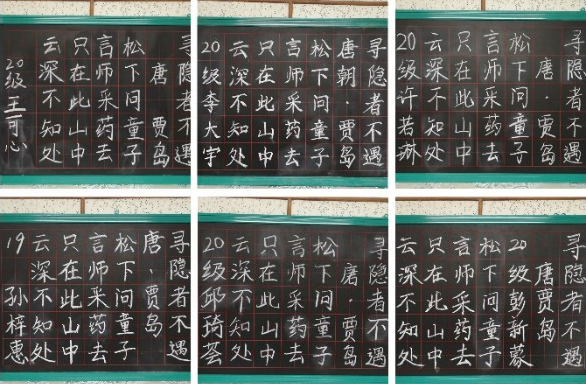 寻隐者不遇
唐 贾岛
松下问童子
言师采药去
只在此山中
云深不知处
20级王可心
寻隐者不遇
唐朝·贾岛
松下问童子
言师采药去
只在此山中
云深不知处
20级李大宇
寻隐者不遇
唐·贾岛
松下问童子
言师采药去
只在此山中
云深不知处
20级许若琳
寻隐者不遇
唐·贾岛
松下问童子
言师采药去
只在此山中
云深不知处
19 孙梓惠
寻隐者不遇
唐·贾岛
松下问童子
言师采药去
只在此山中
云深不知处
20级邱琦荟
寻隐者不遇
唐贾岛
20级彭新蒙
松下问童子
言师采药去
只在此山中
云深不知处